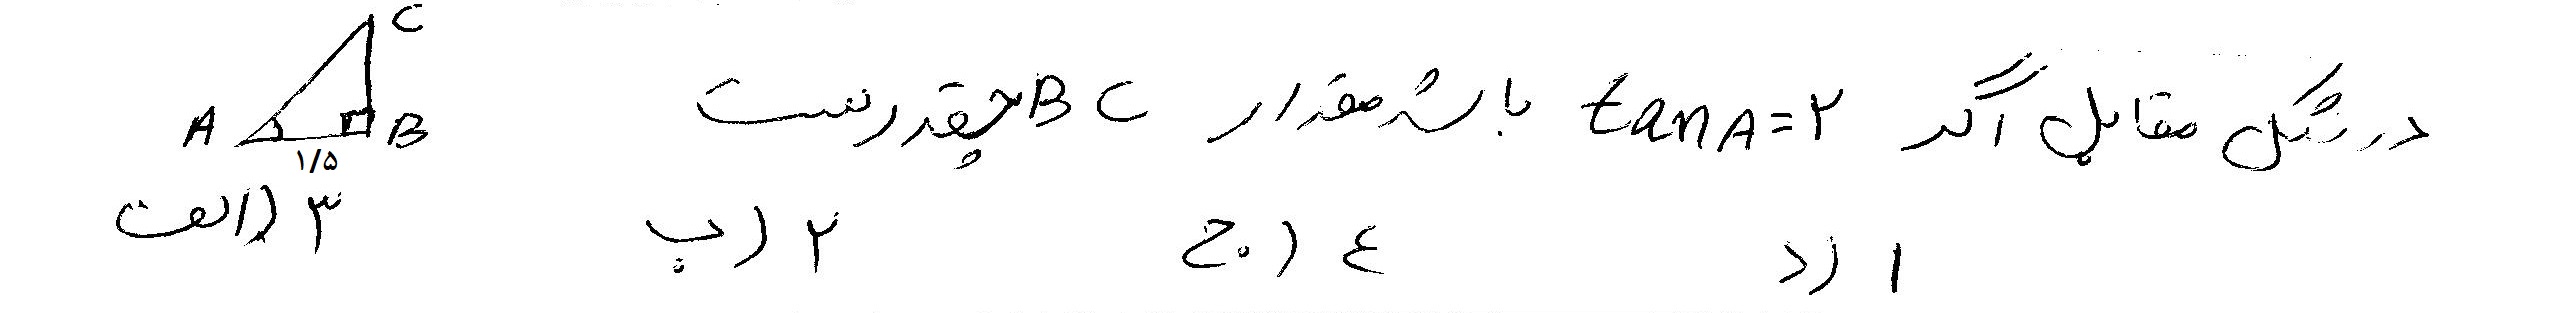 در شکل مقابل اگر tan A = ۲ باشد مقدار BC چقدر است
C
A
B
۱/۵
الف) ۳
ب) ۲
ج) ٤
د) ۱